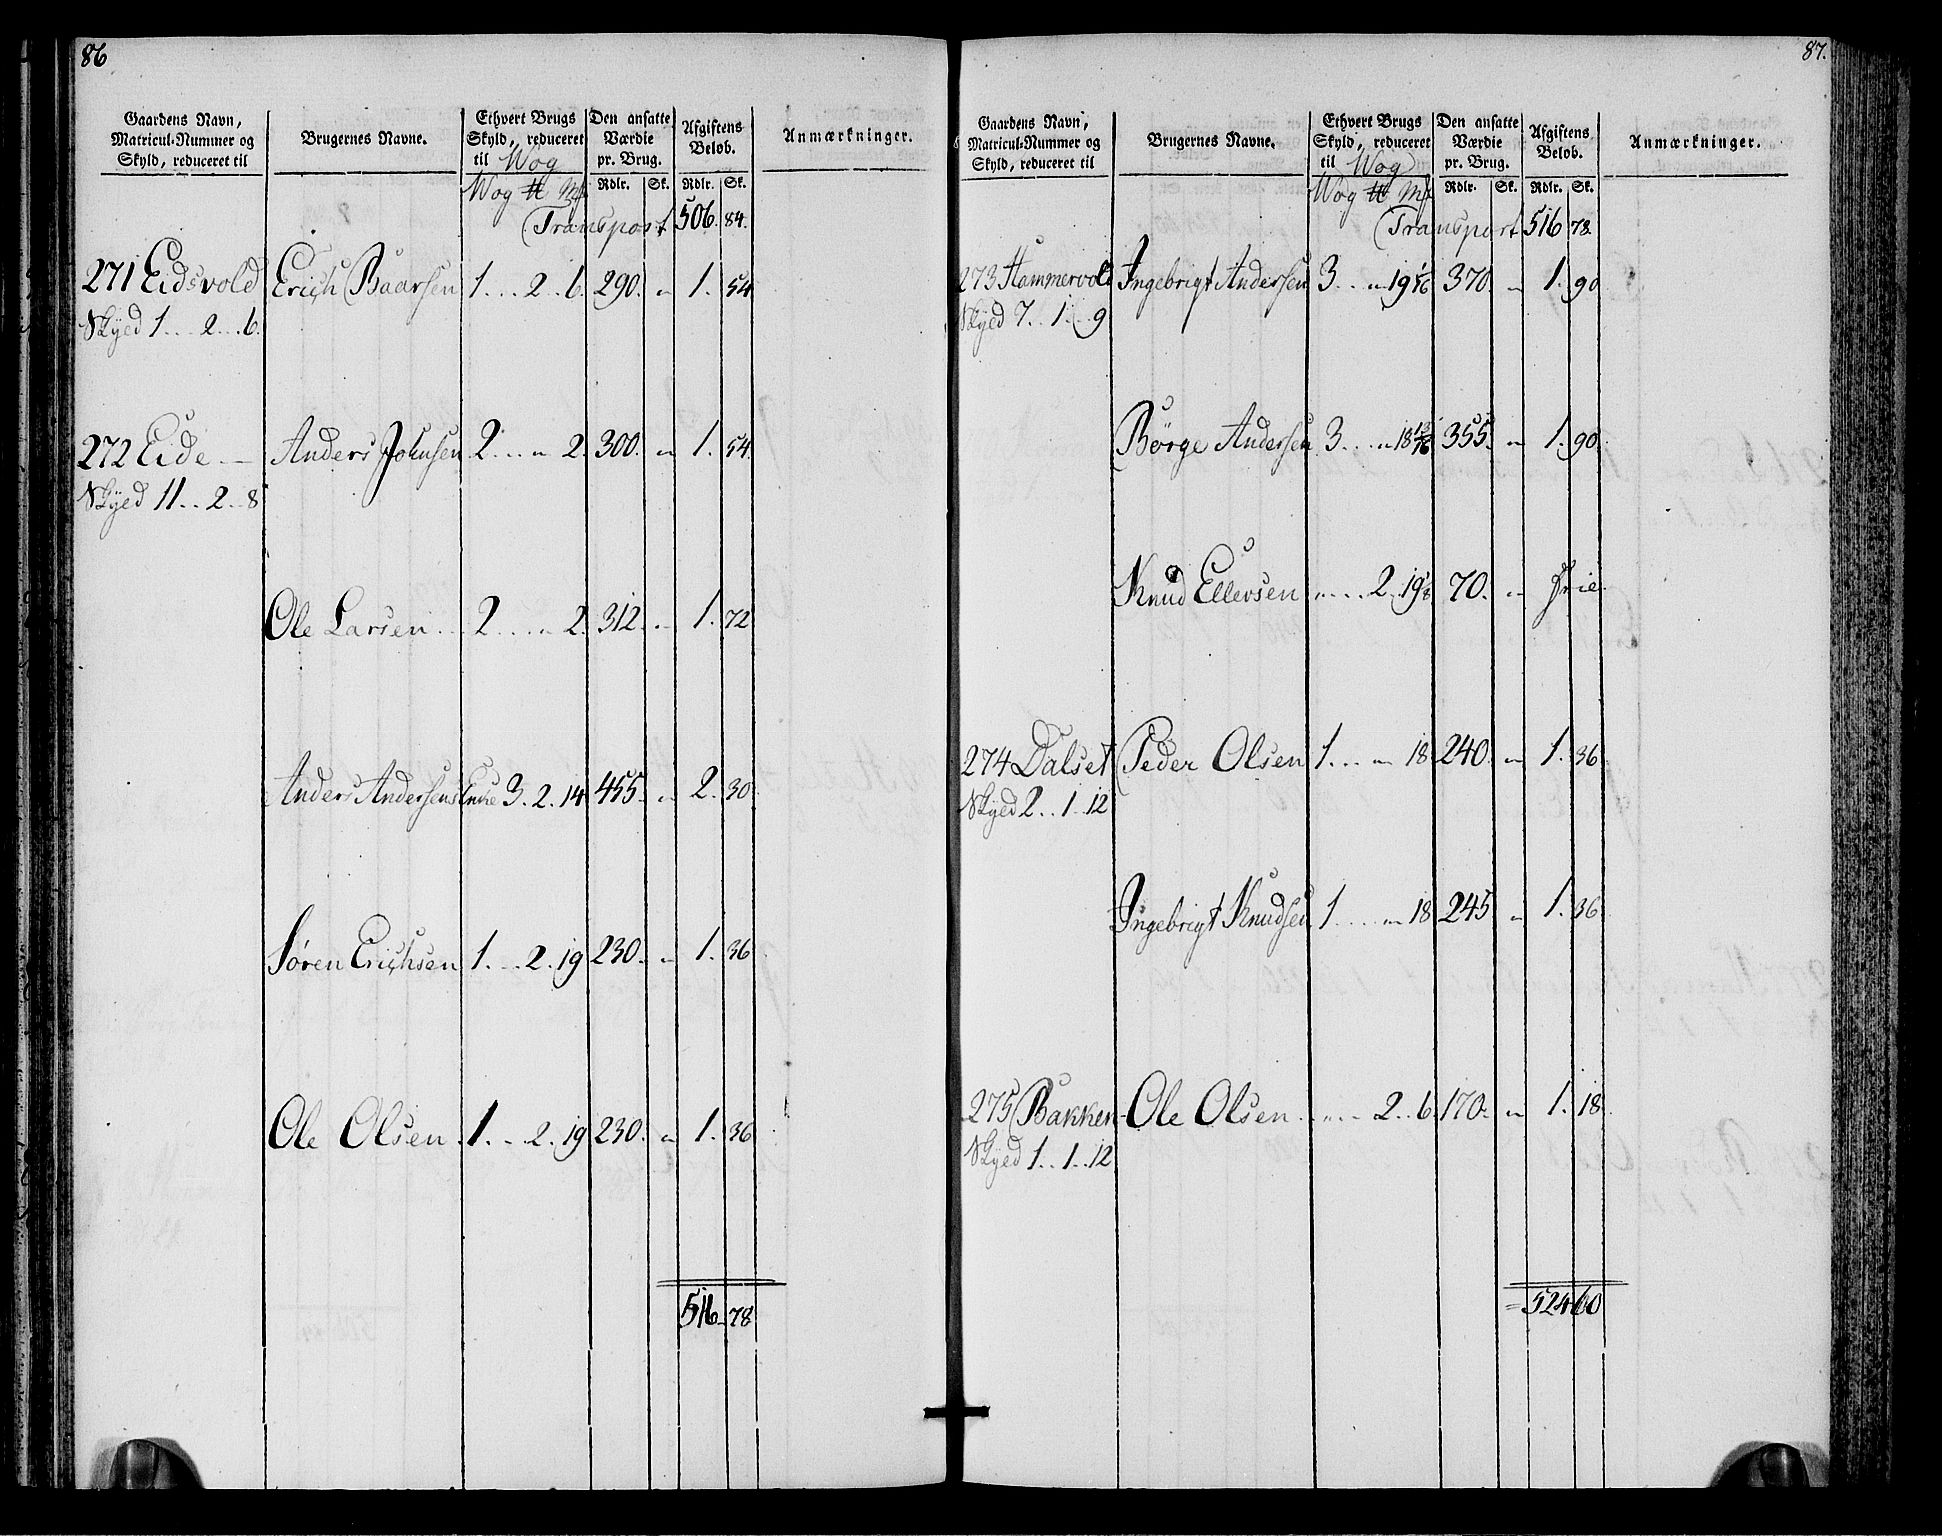 86
Gaardens Navn, Matricul-Nummer og Skyld, reduceret til | Brugernes Navne. | Ethvert Brugs Skyld, reduceret til Wog | Den ansatte Værdie pr. Brug. | Afgiftens Beløb. | Anmærkninger.
Wog ℔ Mk | Rdlr. | Sk. | Rdlr. | Sk.
Transport 506. 84.
271 Eidsvold Erich Baarsen 1 . . . 2 . . 6. 290. „ 1. 54
Skÿed 1 . . . 2 . . . 6.
272 Eide Anders Johnsen 2 . . . „ 2. 300. „ 1. 54.
Skÿed 11 . . 2 . . 8
Ole Larsen . . . 2 . . . . „ 2. 312. „ 1. 72
Anders Andersens Enke 3. 2. 14 455. „ 2. 30
Søren Erichsen 1. . . 2. 19 230. „ 1. 36
Ole Olsen . 1. . . 2. 19 230. „ 1. 36
516. 78
87.
Gaardens Navn, Matricul-Nummer og Skyld, reduceret til | Brugernes Navne. | Ethvert Brugs Skyld, reduceret til Wog | Den ansatte Værdie pr. Brug. | Afgiftens Beløb. | Anmærkninger.
Wog ℔ Mk | Rdlr. | Sk. | Rdlr. | Sk.
Transport 516 78.
273 Hammervold Ingebrigt Andersen 3 . . „ 19 1/16 370. „ 1. 90
Skÿed 7 . . 1 . . 9
Børge Andersen 3 . . . „ 18 13/16 355. „ 1. 90.
Knud Ellevsen „ . . . 2. 19 1/8 70. „ frie.
274 Dalset Peder Olsen 1 . . . „ 18 240. „ 1. 36
Skÿed 2 . . 1 . . 12
Ingebrigt Knudsen 1 . . . . „ 18 245 „ 1. 36
275 Bakken Ole Olsen . . „ . . 2 . . 6. 170. „ 1. 18.
Skÿed 1 . . 1 . . 12
= 524 60